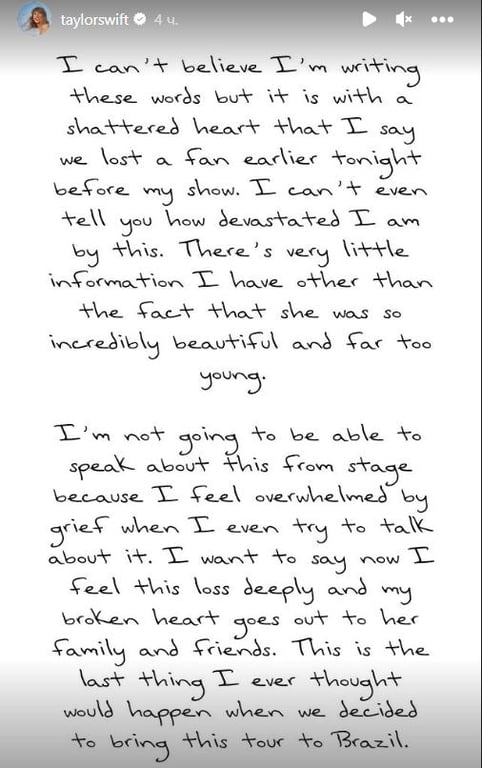 taylorswift 4 ч.
I can't believe I'm writing
these words but it is with a
shattered heart that I say
we lost a fan earlier tonight
before my show. I can't even
tell you how devastated I am
by this. There's very little
information I have other than
the fact that she was so
incredibly beautiful and far too
young.
I'm not going to be able to
speak about this from stage
because I feel overwhelmed by
grief when I even try to talk
about it. I want to say now I
feel this loss deeply and my
broken heart goes out to her
family and friends. This is the
last thing I ever thought
would happen when we decided
to bring this tour to Brazil.